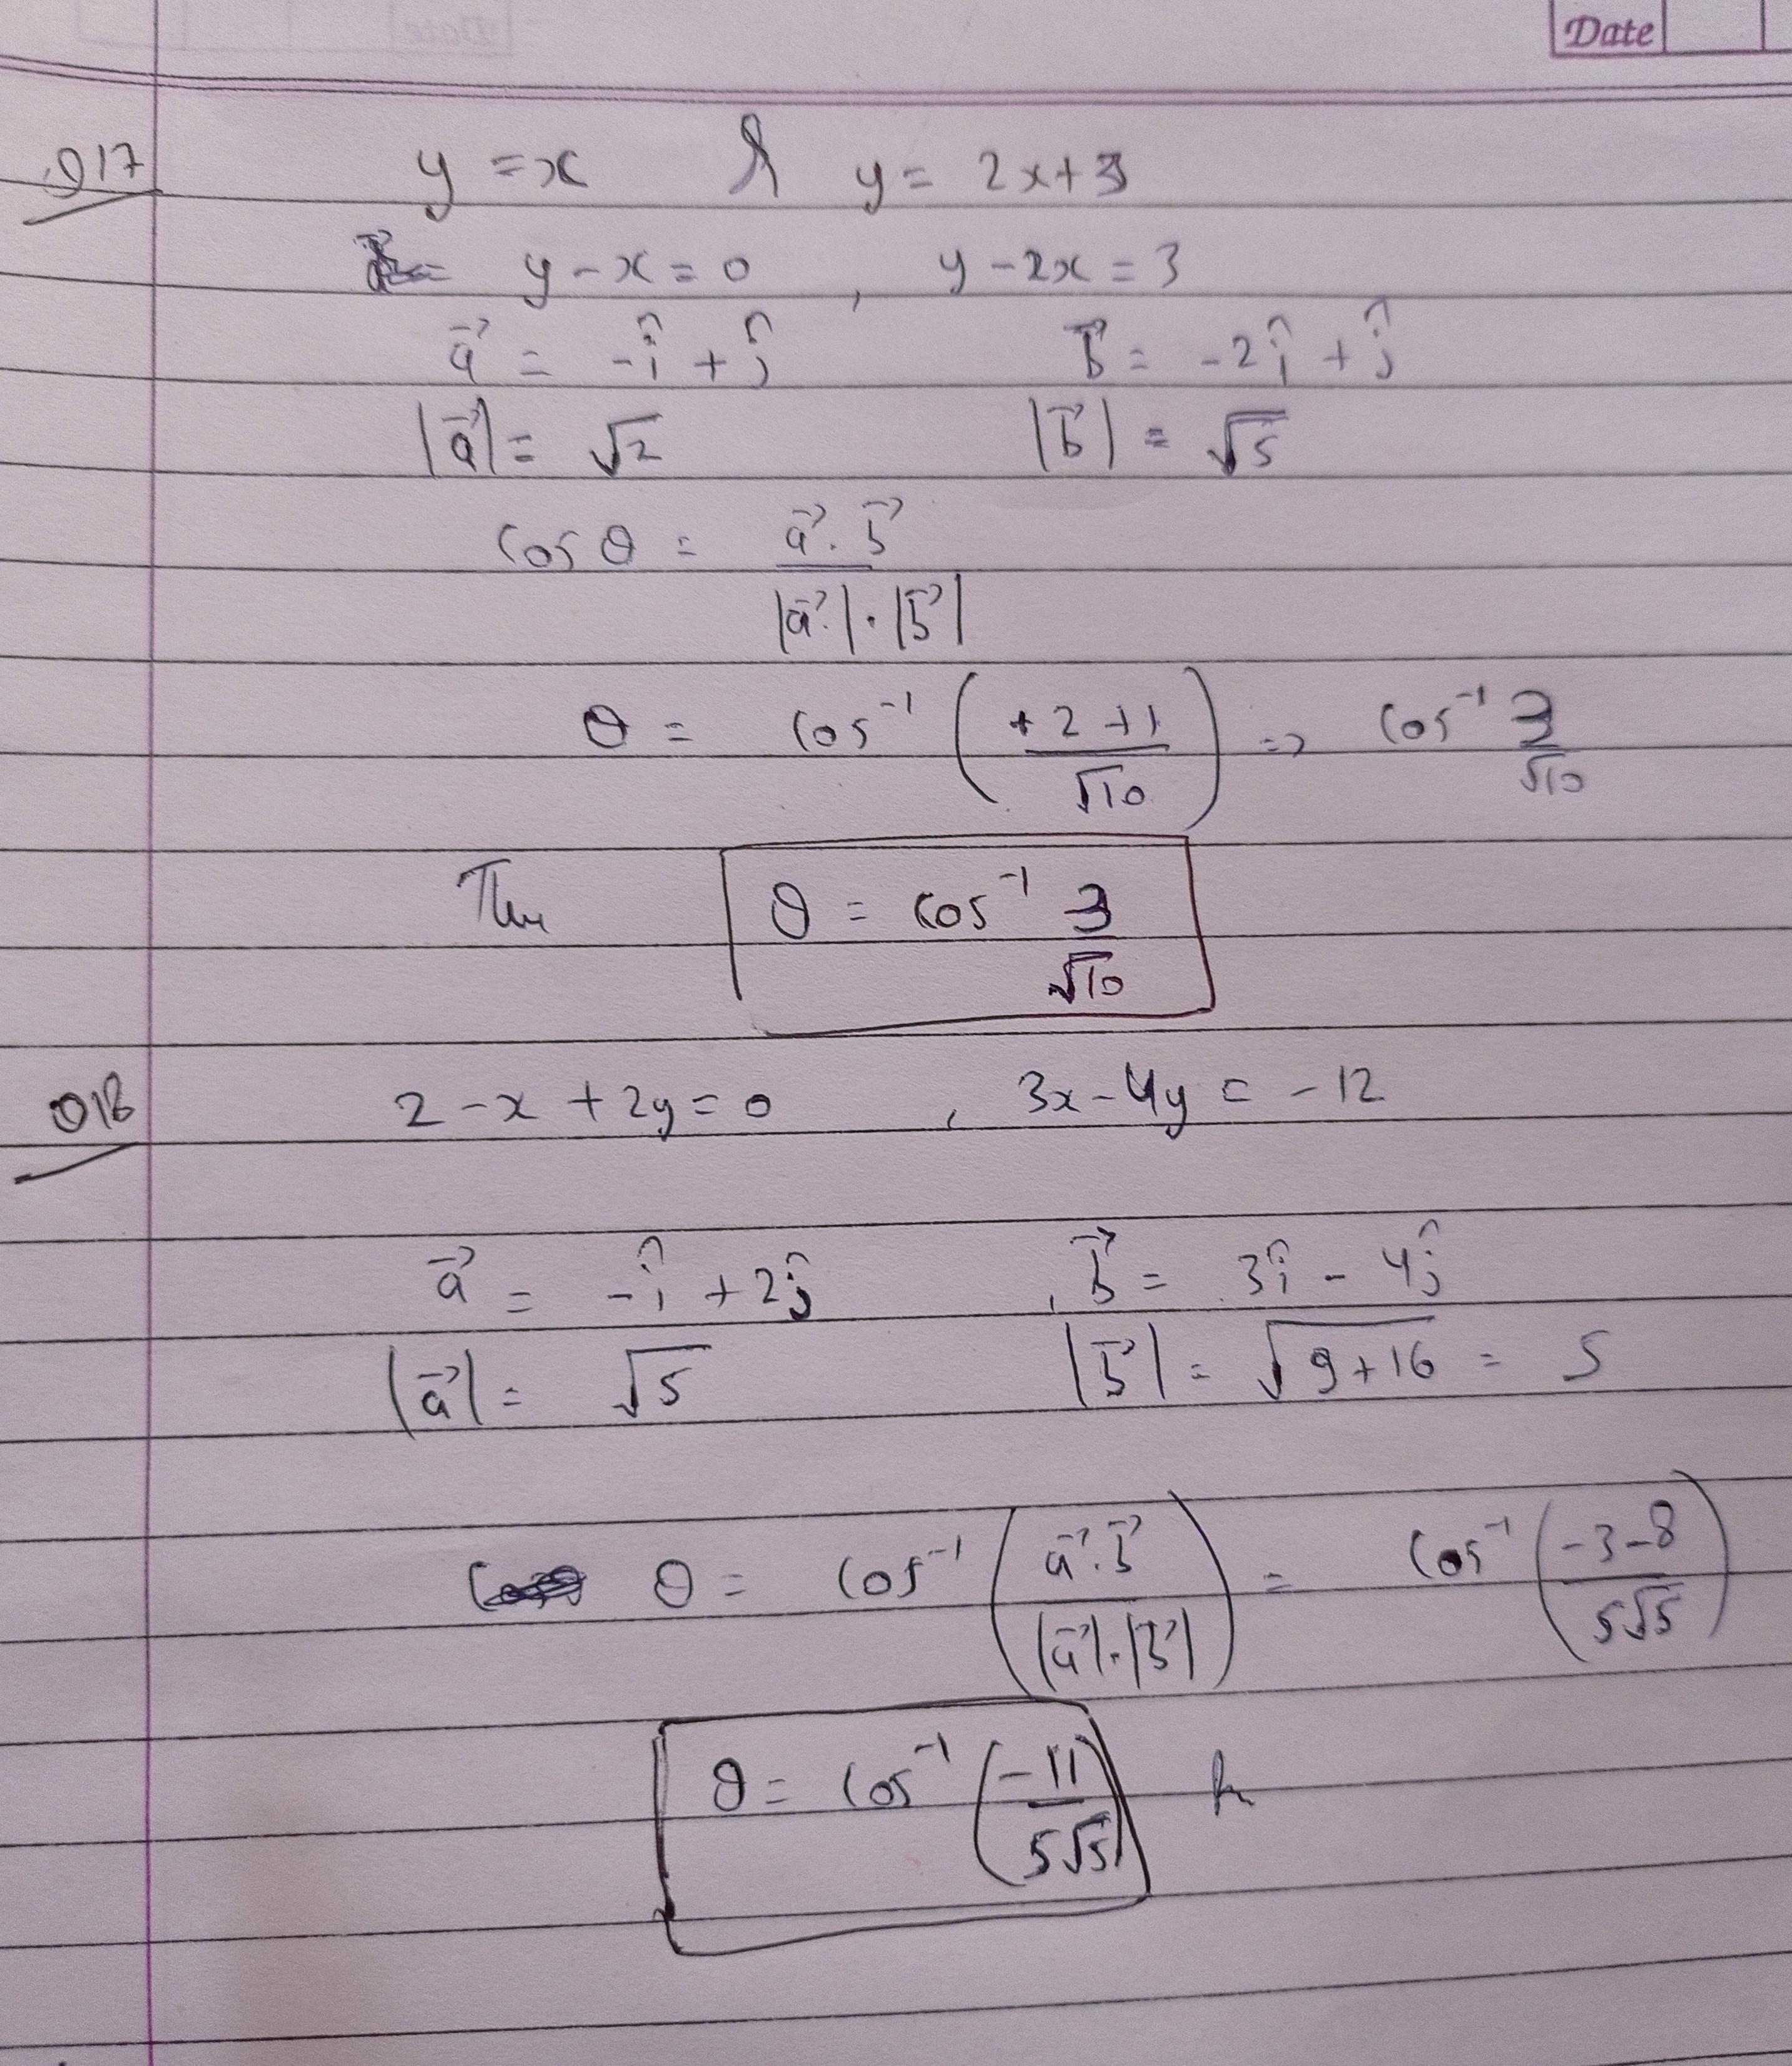 Date
Q17 y = x & y = 2x+3
y - x = 0 , y - 2x = 3
a⃗ = -î + ĵ b⃗ = -2î + ĵ
|a⃗| = √2 |b⃗| = √5
cos θ = a⃗.b⃗ / |a⃗|.|b⃗|
θ = cos⁻¹ (+2+1 / √10) => cos⁻¹ 3/√10
θ = cos⁻¹ 3/√10
Q18 2 - x + 2y = 0 , 3x - 4y = -12
a⃗ = -î + 2ĵ , b⃗ = 3î - 4ĵ
|a⃗| = √5 |b⃗| = √9+16 = 5
θ = cos⁻¹ (a⃗.b⃗ / |a⃗|.|b⃗|) = cos⁻¹ (-3-8 / 5√5)
θ = cos⁻¹ (-11 / 5√5)